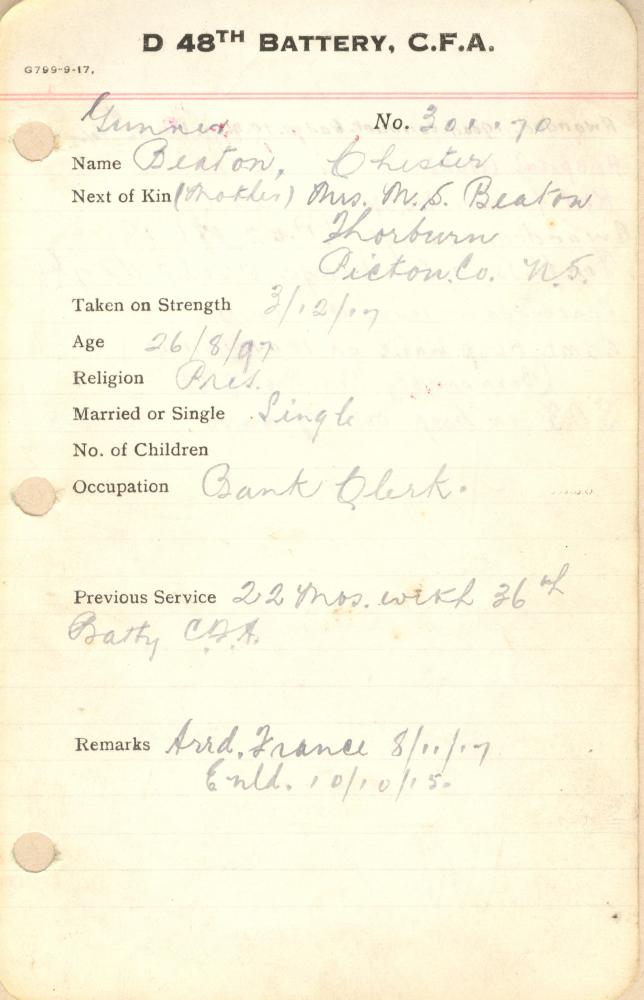 D 48TH BATTERY, C.F.A.
G799-9-17.
Gunner No. 301170
Name Beaton, Chester
Next of Kin (Mother) Mrs. M. S. Beaton
Thorburn
Pictou. Co. N.S.
Taken on Strength 3/12/17
Age 26/8/97
Religion Pres.
Married or Single Single
No. of Children
Occupation Bank Clerk.
Previous Service 22 Mos. with 36th
Batty C.F.A.
Remarks Arrd. France 8/11/17
Enld. 10/10/15.